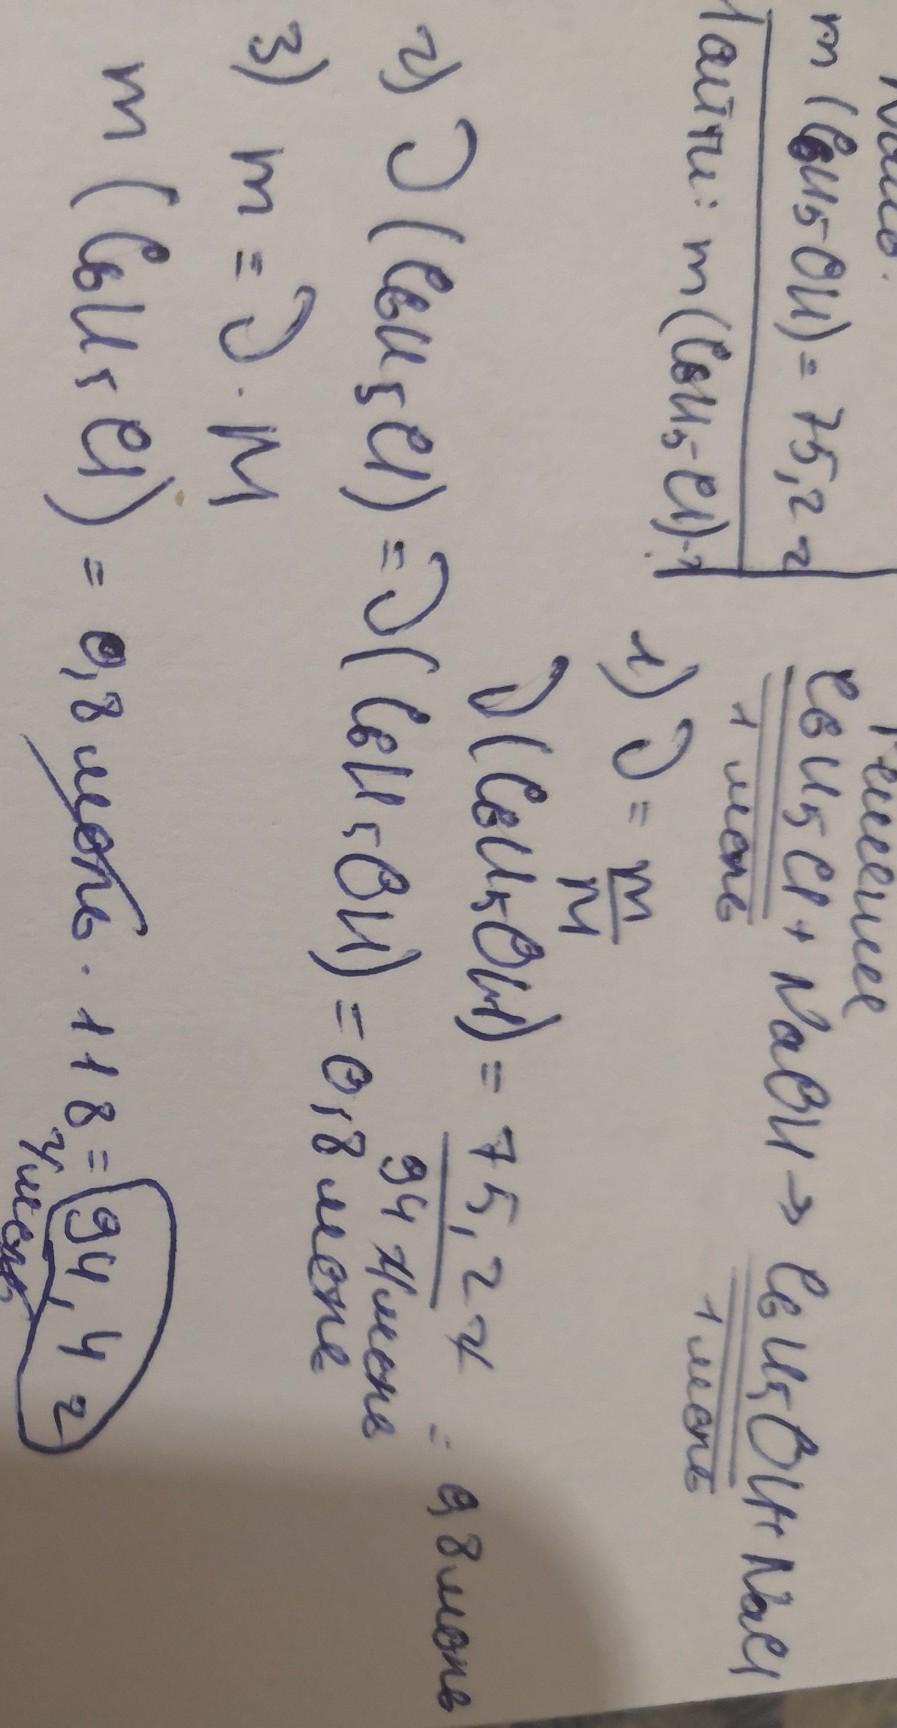 Дано:
m (C6H5OH) = 75,2 г
Найти: m (C6H5-Cl)-?
Решение
C6H5Cl + NaOH → C6H5OH + NaCl
1 моль 1 моль
1) ν = m/M
ν (C6H5OH) = 75,2 г / 94 г/моль = 0,8 моль
2) ν (C6H5Cl) = ν (C6H5OH) = 0,8 моль
3) m = ν · M
m (C6H5Cl) = 0,8 моль · 118 г/моль = 94,4 г